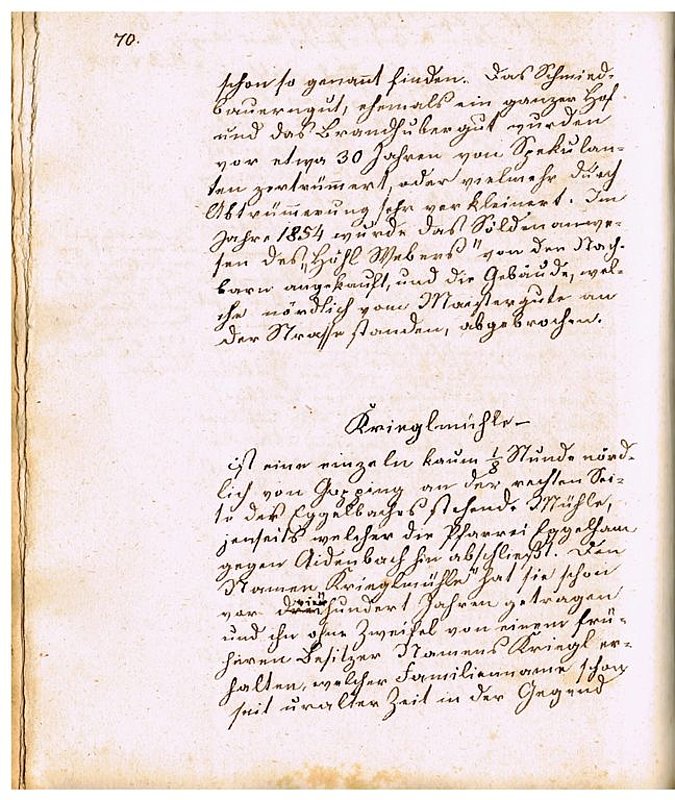 70.
schon so genannt finden. Das Schmied-
bauerngut, ehemals ein ganzer Hof
und das Brandhubergut wurden
vor etwa 30 Jahren von Spekulan-
ten zertrümmert, oder vielmehr durch
Abtrümmerung sehr verkleinert. Im
Jahre 1854 wurde das Söldenanwe-
sen des „Höhl Webers" von den Nach-
barn angekauft, und die Gebäude, wel-
che nördlich vom Maiergute an
der Strasse standen, abgebrochen.
Krieglmühle
ist eine einzeln kaum 1/8 Stunde nörd-
lich von Gopping an der rechten Sei-
te des Eggelbaches stehende Mühle,
jenseits welcher die Pfarrei Eggelham
gegen Aidenbach hin abschließt. Den
Namen „Krieglmühle" hat sie schon
vor vierhundert Jahren getragen
und ihn ohne Zweifel von einem frü-
heren Besitzer Namens Kriegl er-
halten, welcher Familienname schon
seit uralter Zeit in der Gegend